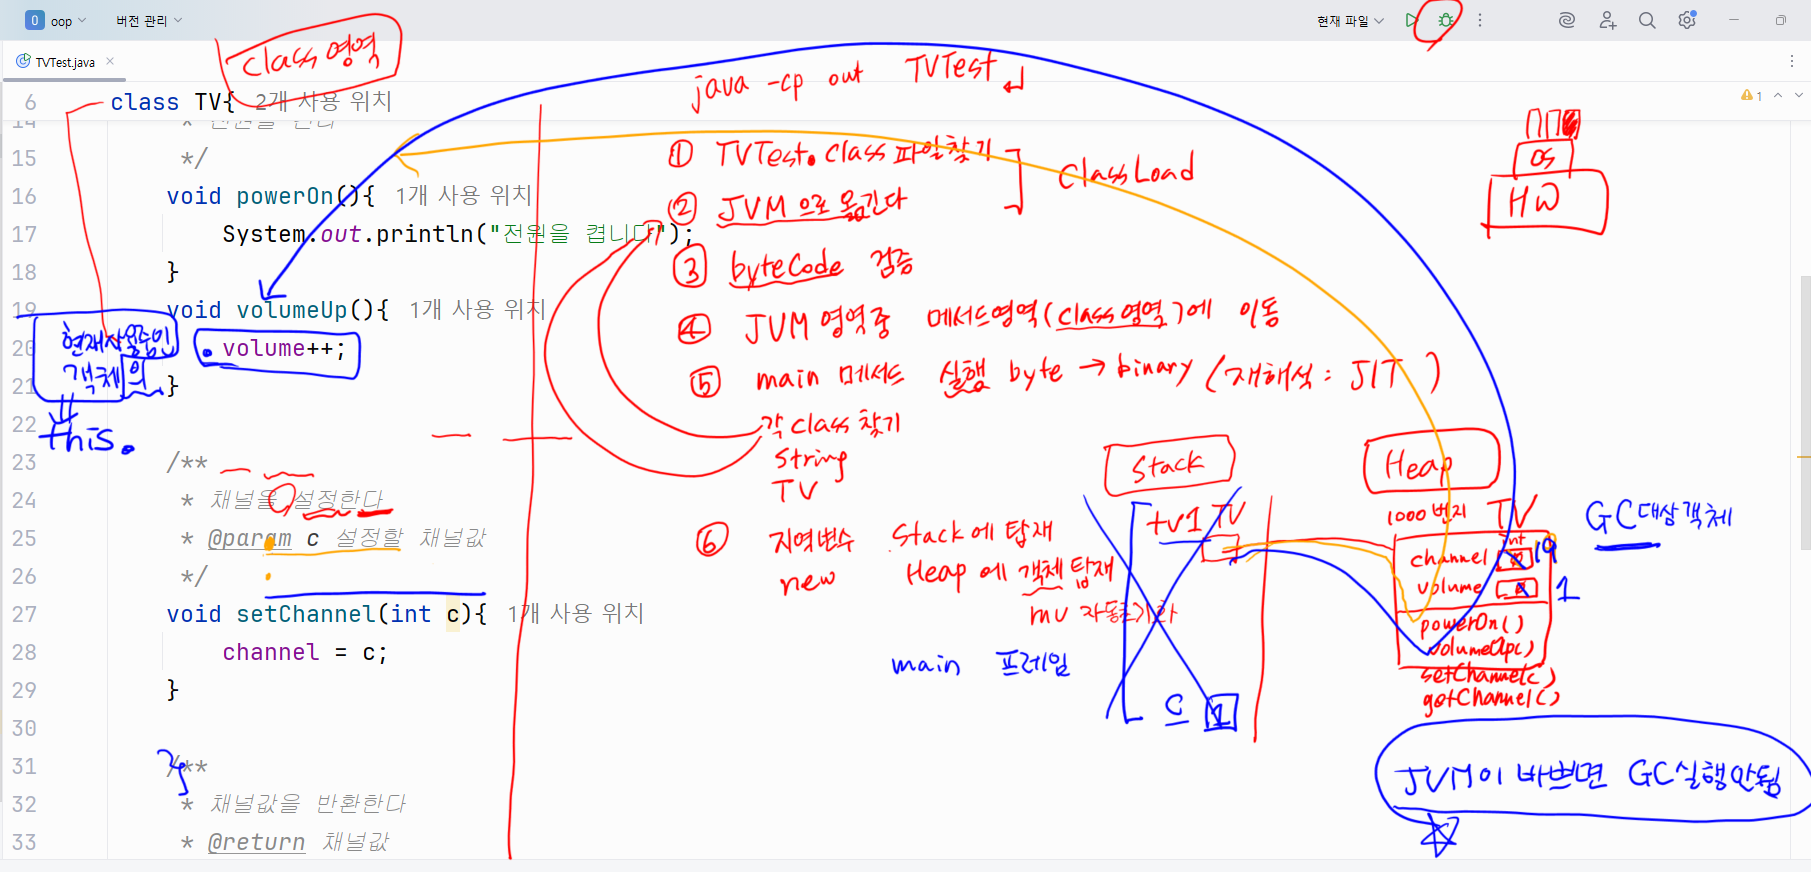 oop
버전 관리
현재 파일
TVTest.java
class 영역
java -cp out TVTest
6 class TV{ 2개 사용 위치
1
14
15 */
16 void powerOn(){ 1개 사용 위치
17 System.out.println("전원을 켭니다");
18 }
19 void volumeUp(){ 1개 사용 위치
20 volume++;
21 }
22
23 /**
24 * 채널을 설정한다
25 * @param c 설정할 채널값
26 */
27 void setChannel(int c){ 1개 사용 위치
28 channel = c;
29 }
30
31 /**
32 * 채널값을 반환한다
33 * @return 채널값
현재사용중인
객체의
this.
① TVTest.class 파일찾기
② JVM 으로 옮긴다
ClassLoad
③ byteCode 검증
④ JVM 영역중 메서드영역(class영역)에 이동
⑤ main 메서드 실행 byte → binary (재해석 : JIT )
각 class 찾기
String
TV
⑥ 지역변수 Stack에 탑재
new Heap에 객체 탑재
mv 자동초기화
main 프레임
OS
HW
Stack
tv1 TV
c 1
Heap
1000번지 TV
int
channel 19
volume 1
powerOn()
volumeUp()
setChannel()
getChannel()
GC대상객체
JVM이 바쁘면 GC실행안됨